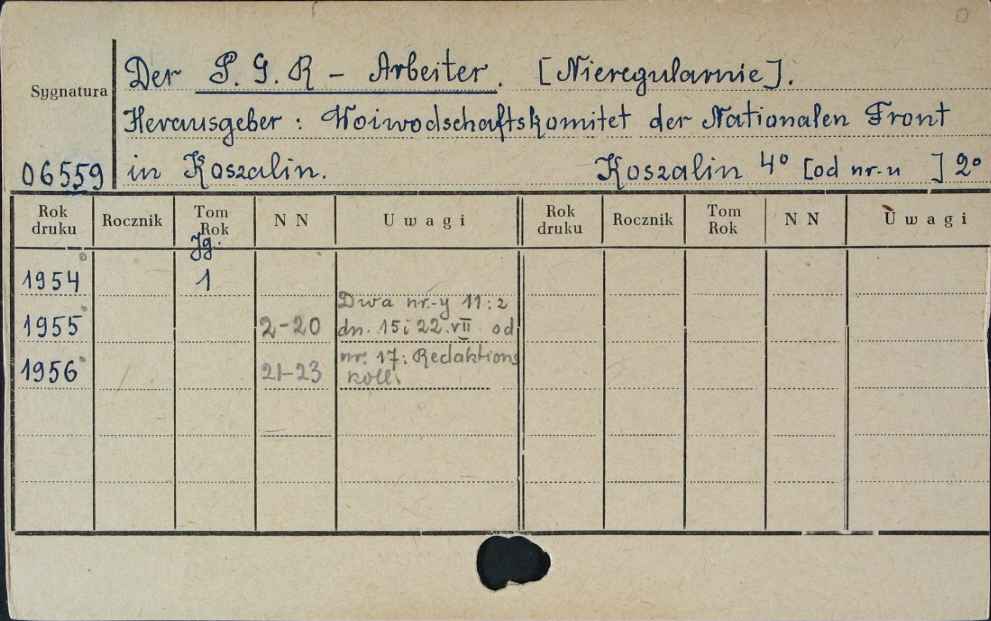 Der P.G.R - Arbeiter. [Nieregularnie].
Sygnatura
Herausgeber: Woiwodschaftskomitet der Nationalen Front
06559 in Koszalin. Koszalin 4° [od nr-u ] 2°
Rok druku Rocznik Tom Rok Jg. N N Uwagi Rok druku Rocznik Tom Rok N N Uwagi
1954 1
Dwa nr-y 11: z
1955 2-20 dn. 15 i 22.VII. od
nr. 17: Redaktions
1956 21-23 koll.